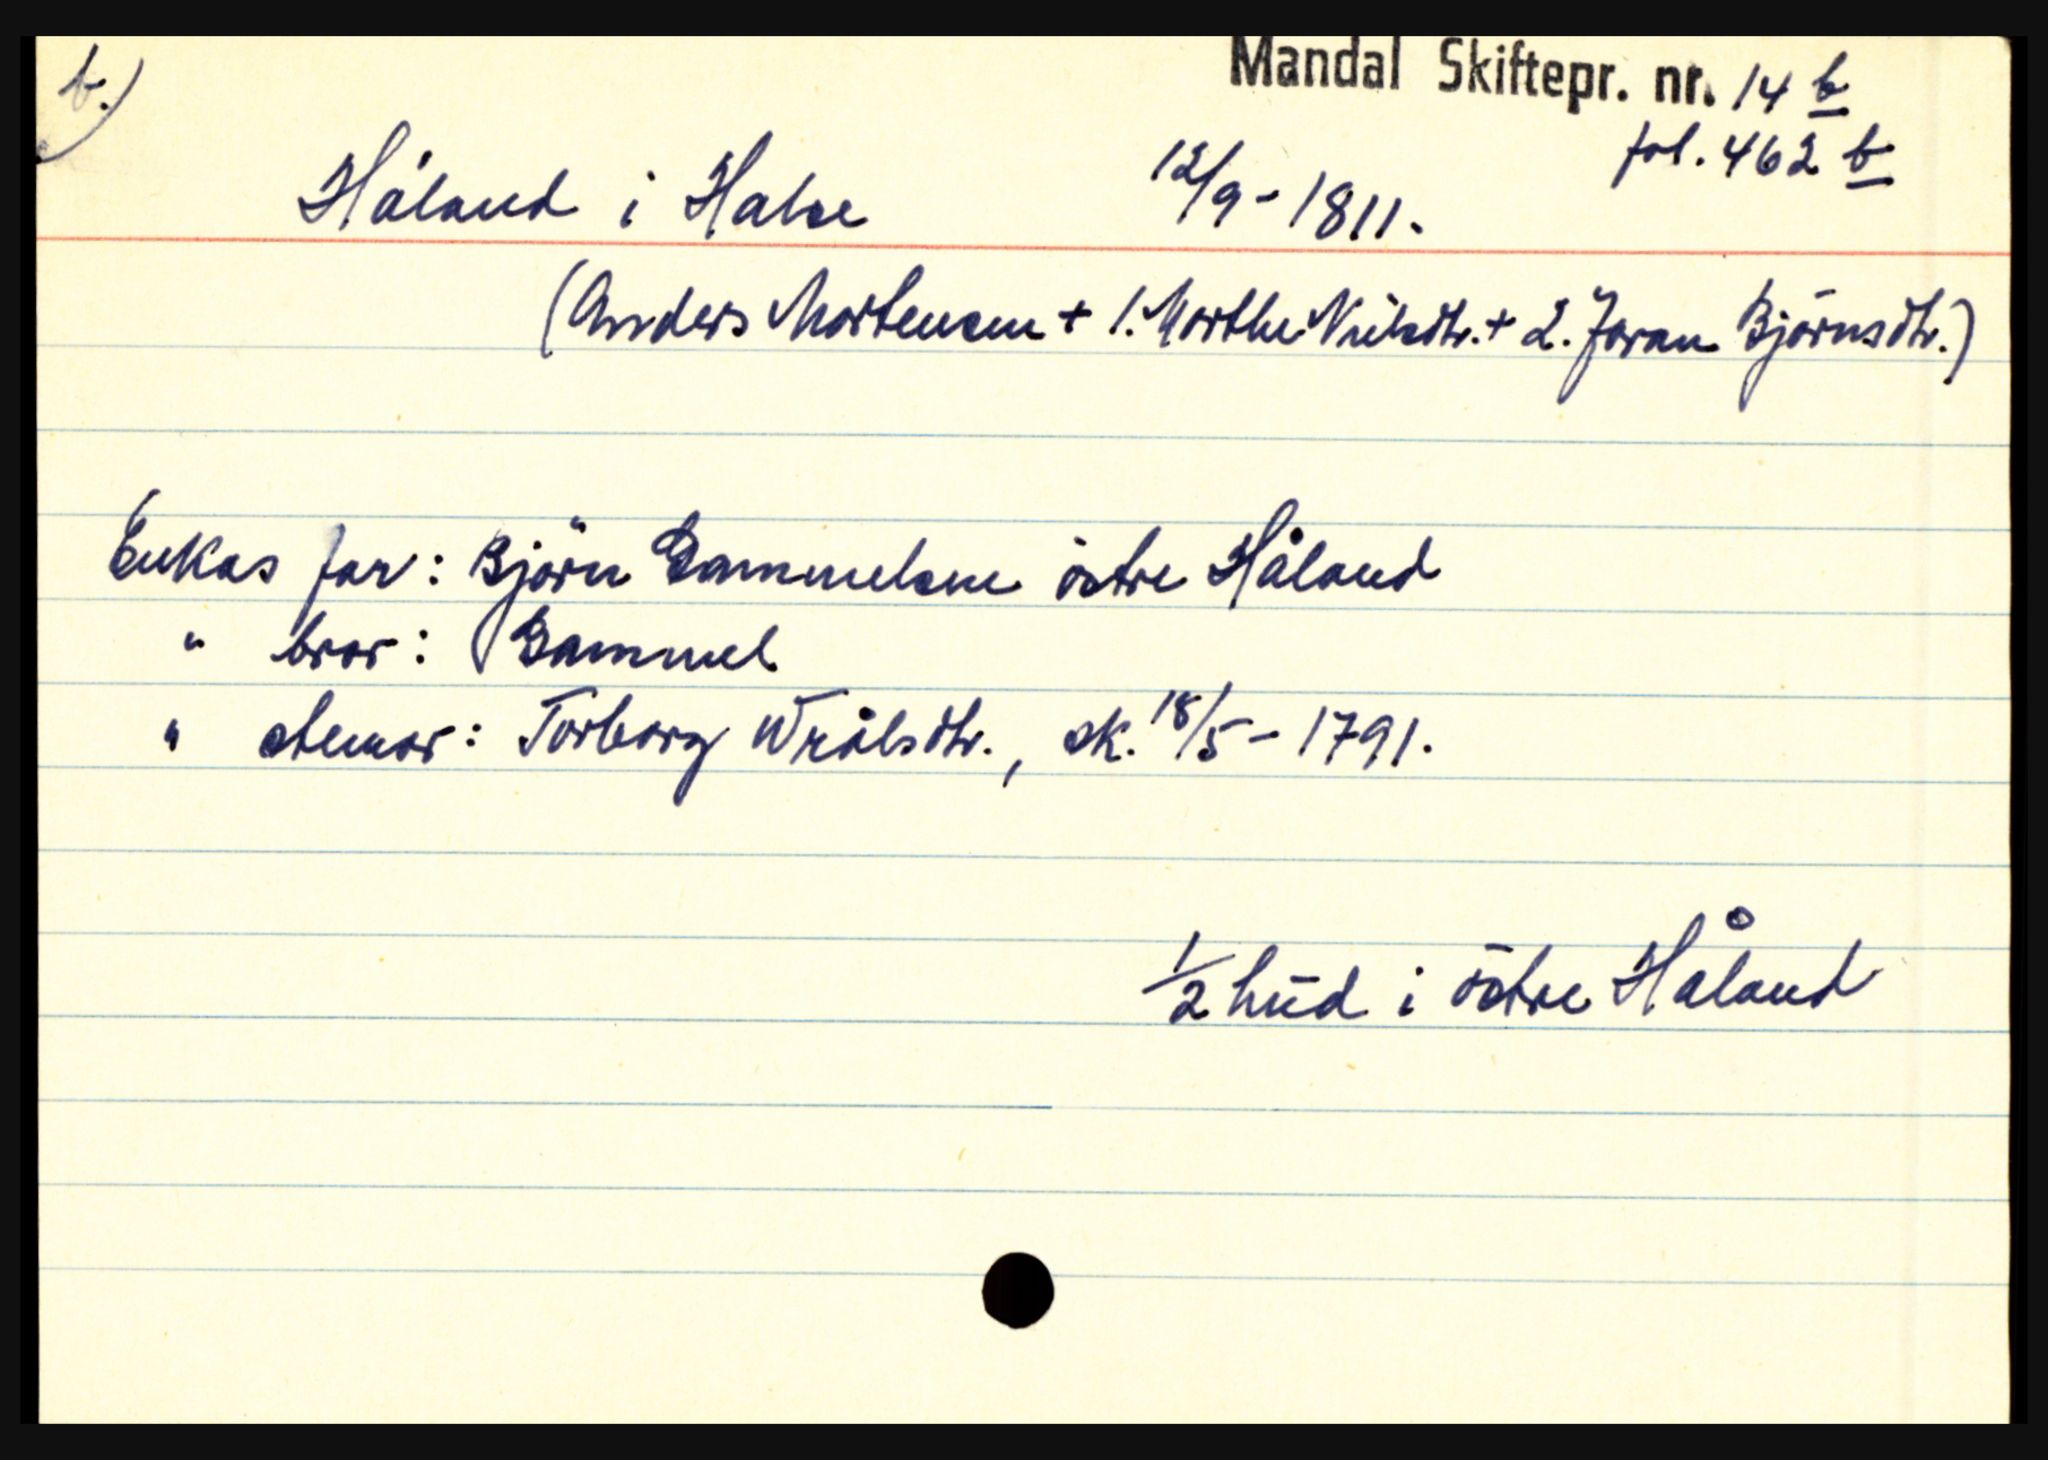 b.)
Mandal Skiftepr. nr. 14 b
fol. 462 b
Håland i Halse 12/9 - 1811.
(Anders Mortensen + 1. Marthe Nielsdtr. + 2. Joran Björnsdtr.)
Enkas far: Björn Gammelsen östre Håland
" bror: Gammel
" stemor: Torborg Wrålsdtr., sk. 18/5 - 1791.
1/2 hud i östre Håland